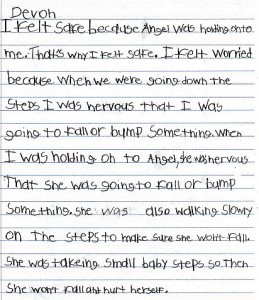 Devon
I Felt Safe because Angel was holding onto
me. That's why I felt safe. I felt worried
because when we were going down the
steps I was nervous that I was
going to fall or bump something. When
I was holding on to Angel, she was nervous
That she was going to fall or bump
Something. she was also walking Slowly
on The steps to make sure she won't fall.
She was takeing Small baby steps so Then
She won't fall and hurt herself.